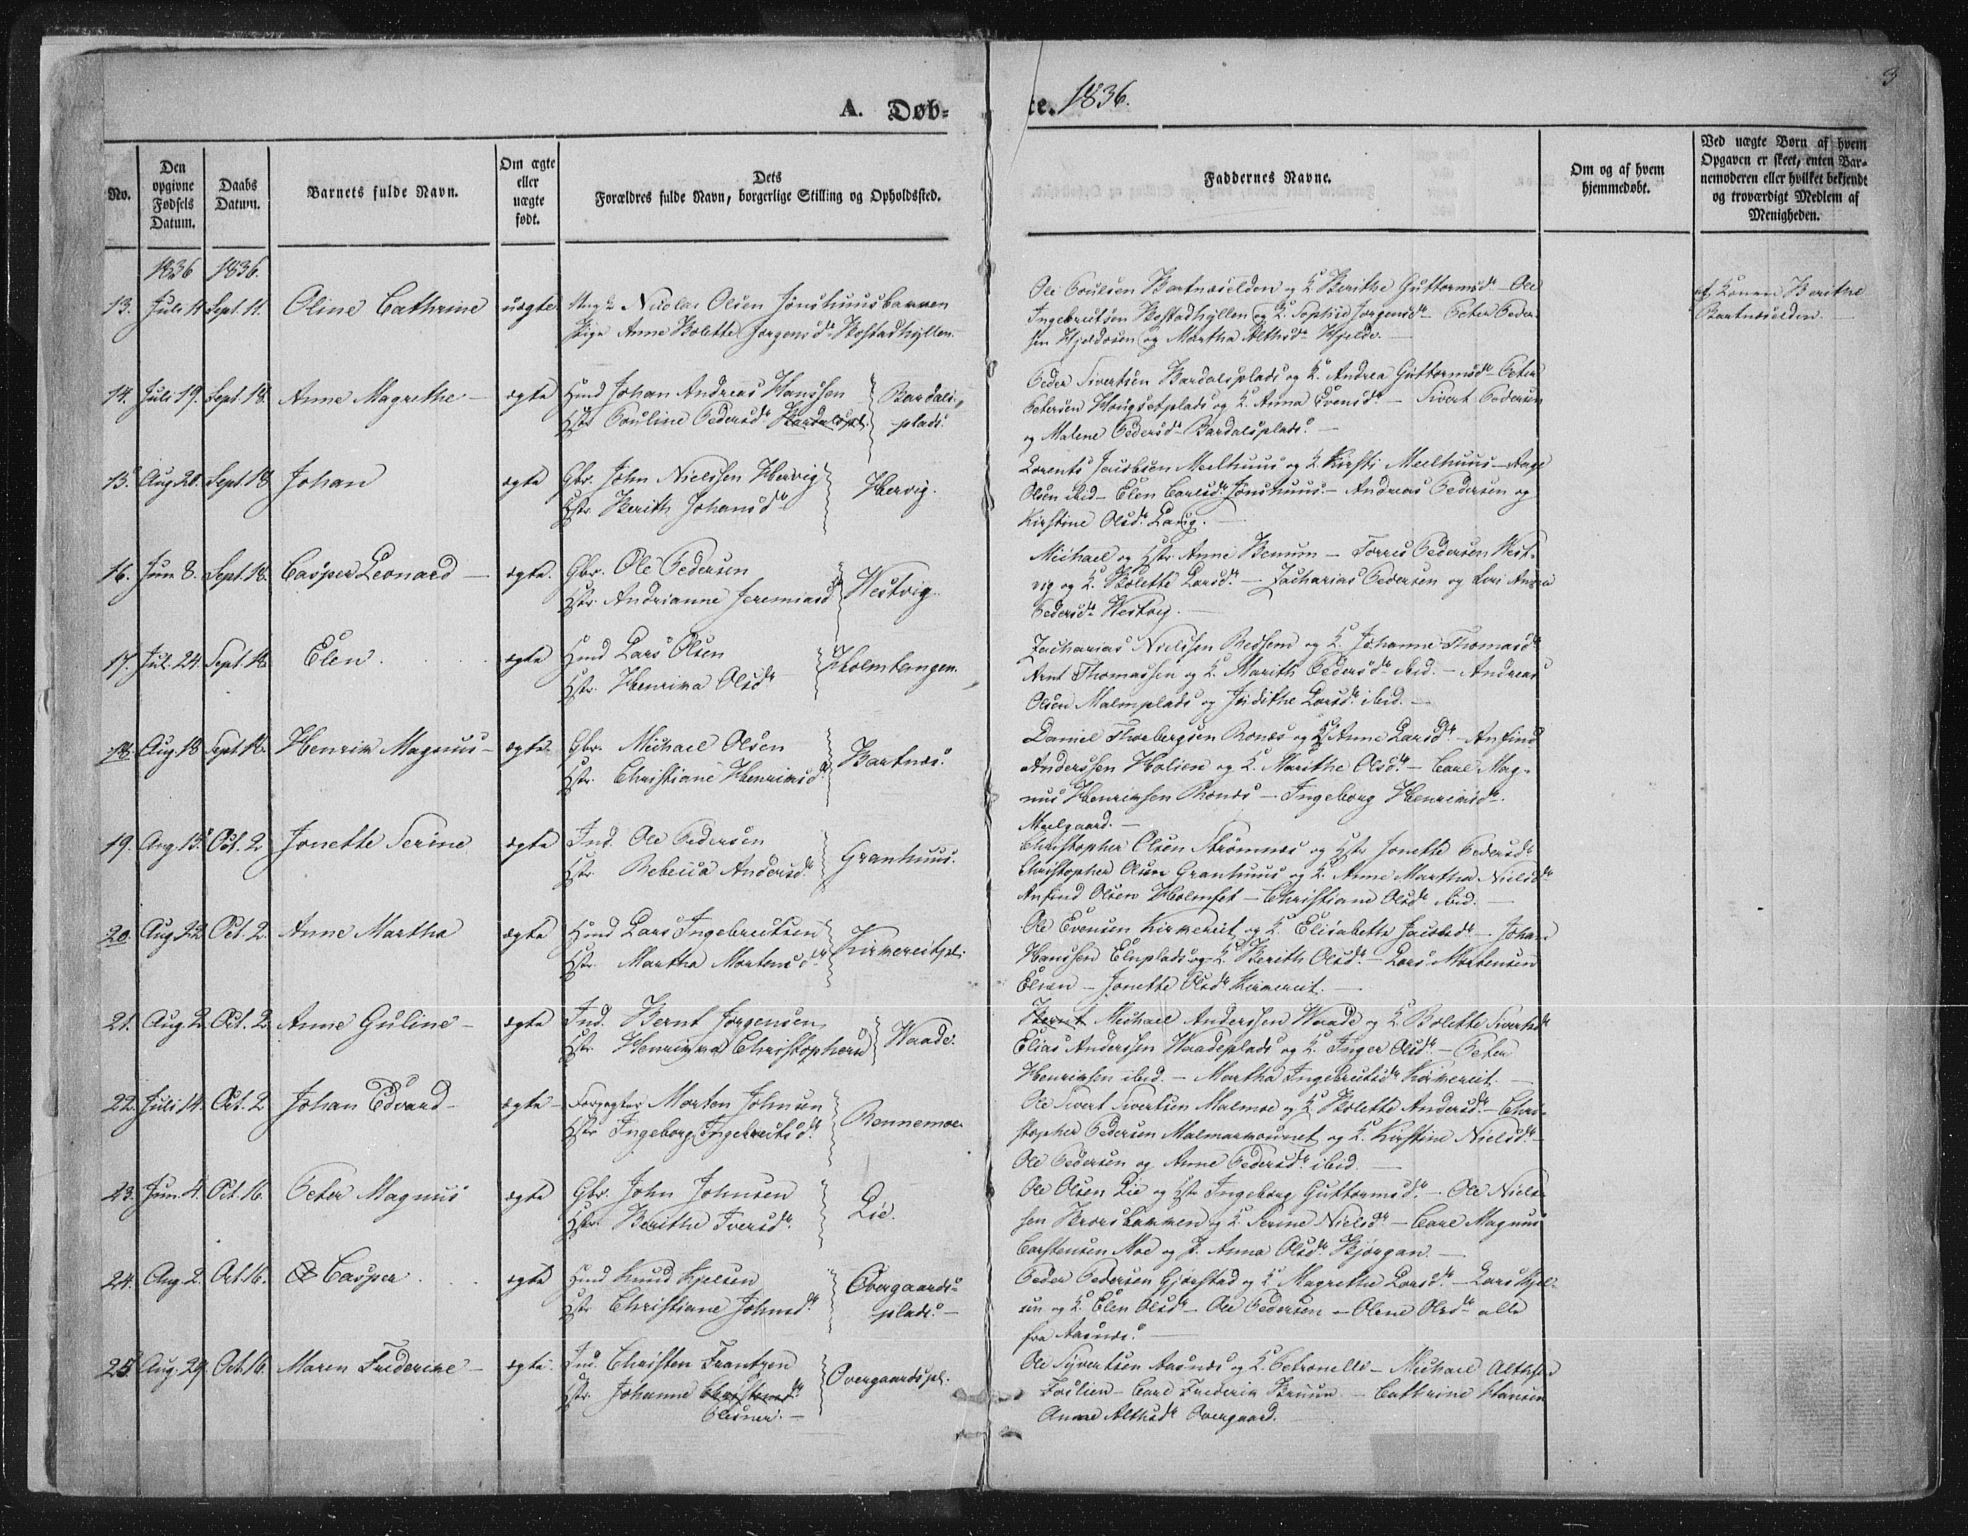 3
A. Døb-
te. 1836.
No.
Den opgivne Fødsels Datum.
Daabs Datum.
Barnets fulde Navn.
Om ægte eller uægte født.
Dets
Forældres fulde Navn, borgerlige Stilling og Opholdssted.
Faddernes Navne.
Om og af hvem hjemmedøbt.
Ved uægte Børn af hvem
Opgaven er skeet, enten Bar-
nemoderen eller hvilket bekjendt
og troværdigt Medlem af
Menigheden.
1836 1836.
13. Juli 11 Sept. 11. Oline Cathrine uægte Nicolai Olsen
Pige Anne Bolette Jørgensd. Bostadhyllen
Ole Poulsen Bartnæselden og K. Berithe Guttormsd. - Ole
Ingebrigtsen Bostadhyllen og K. Sophie Jørgensd. - Peter Peder-
sen og Martha Althsd. Hjelde. -
af Konen Berithe
Bartnæselden. -
14. Juli 19. Sept. 18. Anne Magrethe - ægte Huusd Johan Andreas Hanssen
Hstr. Pouline Pedersd. Bardals-
plads.
Peder Sivertsen Bardalsplads og K. Andrea Guttormsd. - Peter
Petersen Hougsetplads og K. Anna Svensd. - Sivert Pedersen
og Malene Pedersd. Bardalsplads. -
15. Aug 20. Sept. 18 Johan ægte Gbr. John Nielssen Hervig
Hstr. Berith Johansd. Hervig.
Lorents Jacobsen Meelhuus og K. Kirsti Meelhuus - Aage
Olsen ibid - Elen Carlsd. Jønshuus. - Andreas Pedersen og
Kirstine Olsd. Laug. -
16. Jun 8. Sept. 18. Casper Leonard - ægte. Gbr. Ole Pedersen
Hstr. Andrianne Jeremiasd. Westvig.
Michael og Hstr. Anne Benum - Torris Pedersen West-
vig og K. Bolette Larsd. - Zacharias Pedersen og
Pedersd. Westvig. -
17. Jul. 24. Sept. 18. Elen. ægte Huusd Lars Olsen
Hstr. Henrika Olsd. Holmtangen.
Zacharias Nielssen Redsem og K. Johanne Thomasd.
Arnt Thomassen og K. Marith Pedersd. ibid. - Andreas
Olsen Malmplads og Judithe Larsd. ibid. -
18. Aug 18 Sept. 18. Henrik Magnus - ægte Gbr. Michael Olsen
Hstr. Christiane Henriksd. Bartnæs.
Daniel Thorbergsen Ronæs og Anne Larsd. - Anfind
Anderssen Holien og K. Marithe Olsd. - Carl Mag-
nus Henriksen Ronæs - Ingeborg Henriksd.
Melgaard. -
19. Aug 15. Oct. 2 Jonette Serine ægte Ind. Ole Pedersen
Hstr. Rebecca Andersd. Granhuus.
Christopher Olsen Strømnæs og Hstr. Jonette Pedersd.
Christopher Olsen Granhuus og K. Anne Martha Nielsd.
Anfind Olsen Holmset - Christiane Olsd. ibid. -
20. Aug 22 Oct. 2. Anne Martha ægte Huusd Lars Ingebrigtsen
Hstr. Martha Mortensd. Kirkereitpl.
Ole Evensen Kirkereit og K. Elisabeth Jacobsd. - Johan
Hanssen Elnplads og K. Berith Olsd. - Lars Mortensen
Elven - Jonette Olsd. Kirkereit. -
21. Aug 2. Oct. 2 Anne Guline - ægte Ind. Bernt Jørgensen
Hstr. Henrikka Christophersd. Waade.
Bernt Michael Anderssen Waade og K. Bolette Sivertsd.
Elias Anderssen Waadeplads og K. Inger Olsd. - Peter
Henriksen ibid. - Martha Ingebrigtsd. Kirkereit. -
22. Juli 14. Oct. 2 Johan Edvard - ægte - Forpagter Morten Johnsen
Hstr. Ingeborg Ingebrigtsd. Rennemoe.
Ole Sivert Sivertsen Malmoe og K. Bolette Andersd. - Chri-
stopher Pedersen og K. Kirstine Nielsd. -
Ole Pedersen og Anne Pedersd. ibid. -
23. Jun. 4. Oct. 16. Peter Magnus ægte Gbr. John Johnsen
Hstr. Berithe Iversd. Lie.
Ole Olsen Lie og Hstr. Ingeborg Guttormsd. - Ole Niels-
sen og K. Serine Nielsd. - Carl Magnus
Carstensen Moe og P. Anna Olsd. Bjørgan. -
24. Aug. 2. Oct. 16. Casper. ægte Huusd Knud Kjelsen
Hstr. Christiane Johnsd. Overgaards-
plads. -
Peder Pedersen Gjørstad og K. Magrethe Larsd. - Lars Kjel-
sen og K. Elen Olsd. - Ole Pedersen - Olene Olsd. alle
fra Aasnæs. -
25. Aug. 29. Oct. 16. Maren Friderike - ægte. Ind. Christen Frantzen
Hstr. Johanne
Overgaardspl.
Ole Syvertsen Aasnæs og K. Petronelle - Michael Althsen
Foslien - Carl Frederik Bruun - Cathrine Hansen
Anne Althsd. Overgaard.